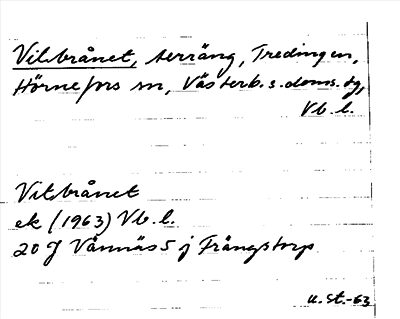 Vitbrånet, terräng, Tredingen,
Hörnefors sn, Västerb. s. doms. tg,
Vb. l.
Vitbrånet
ek (1963) Vb. l.
20 J Vännäs 5 j Frängstorp
u. st. -63